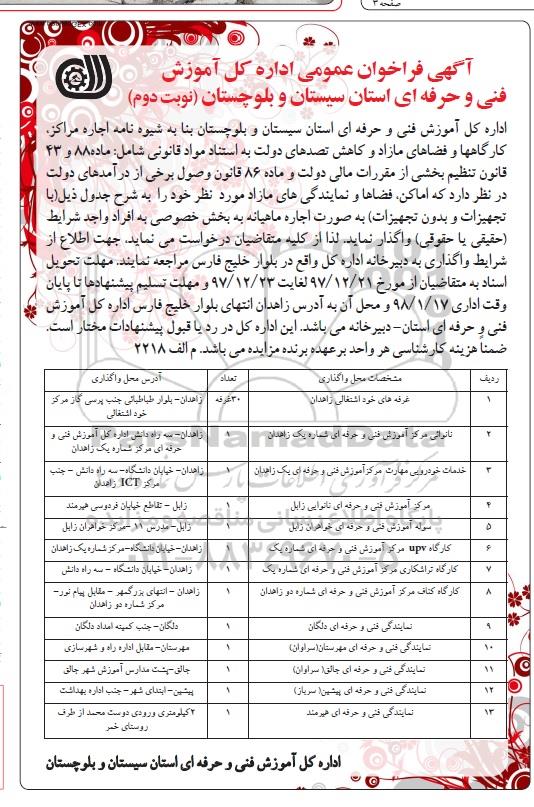 صفحه ۳
آگهی فراخوان عمومی اداره کل آموزش
فنی و حرفه ای استان سیستان و بلوچستان (نوبت دوم)
اداره کل آموزش فنی و حرفه ای استان سیستان و بلوچستان بنا به شیوه نامه اجاره مراکز،
کارگاهها و فضاهای مازاد و کاهش تصدهای دولت به استناد مواد قانونی شامل: ماده۸۸ و ۴۳
قانون تنظیم بخشی از مقررات مالی دولت و ماده ۸۶ قانون وصول برخی از درآمدهای دولت
در نظر دارد که اماکن، فضاها و نمایندگی های مازاد مورد نظر خود را به شرح جدول ذیل(با
تجهیزات و بدون تجهیزات) به صورت اجاره ماهیانه به بخش خصوصی به افراد واجد شرایط
(حقیقی یا حقوقی) واگذار نماید. لذا از کلیه متقاضیان درخواست می نماید. جهت اطلاع از
شرایط واگذاری به دبیرخانه اداره کل واقع در بلوار خلیج فارس مراجعه نمایند. مهلت تحویل
اسناد به متقاضیان از مورخ ۹۷/۱۲/۲۱ لغایت ۹۷/۱۲/۲۳ و مهلت تسلیم پیشنهادها تا پایان
وقت اداری ۹۸/۱/۱۷ و محل آن به آدرس زاهدان انتهای بلوار خلیج فارس اداره کل آموزش
فنی و حرفه ای استان- دبیرخانه می باشد. این اداره کل در رد یا قبول پیشنهادات مختار است.
ضمناً هزینه کارشناسی هر واحد برعهده برنده مزایده می باشد. م الف ۲۲۱۸
ردیف مشخصات محل واگذاری تعداد آدرس محل واگذاری
۱ غرفه های خود اشتغالی زاهدان ۳۰غرفه زاهدان- بلوار طباطبائی جنب پرسی گاز مرکز
خود اشتغالی
۲ نانوائی مرکز آموزش فنی و حرفه ای شماره یک زاهدان ۱ زاهدان- سه راه دانش اداره کل آموزش فنی و
حرفه ای مرکز شماره یک زاهدان
۳ خدمات خودرویی مهارت مرکز آموزش فنی و حرفه ای یک زاهدان ۱ زاهدان- خیابان دانشگاه- سه راه دانش - جنب
مرکز ICT زاهدان
۴ مرکز آموزش فنی و حرفه ای نانوایی زابل ۱ زابل - تقاطع خیابان فردوسی هیرمند
۵ سوله آموزش فنی و حرفه ای خواهران زابل ۱ زابل- مدرس ۱۱ -مرکز خواهران زابل
۶ کارگاه upv مرکز آموزش فنی و حرفه ای شماره یک ۱ زاهدان-خیابان دانشگاه-مرکز شماره یک زاهدان
۷ کارگاه تراشکاری مرکز آموزش فنی و حرفه ای شماره یک ۱ زاهدان- خیابان دانشگاه - سه راه دانش
۸ کارگاه کناف مرکز آموزش فنی و حرفه ای شماره دو زاهدان ۱ زاهدان - انتهای بزرگمهر - مقابل پیام نور-
مرکز شماره دو زاهدان
۹ نمایندگی فنی و حرفه ای دلگان ۱ دلگان- جنب کمیته امداد دلگان
۱۰ نمایندگی فنی و حرفه ای مهرستان(سراوان) ۱ مهرستان- مقابل اداره راه و شهرسازی
۱۱ نمایندگی فنی و حرفه ای جالق( سراوان) ۱ جالق-پشت مدارس آموزش شهر جالق
۱۲ نمایندگی فنی و حرفه ای پیشین( سرباز) ۱ پیشین- ابتدای شهر- جنب اداره بهداشت
۱۳ نمایندگی فنی و حرفه ای هیرمند ۱ ۲کیلومتری ورودی دوست محمد از طرف
روستای خمر
اداره کل آموزش فنی و حرفه ای استان سیستان و بلوچستان